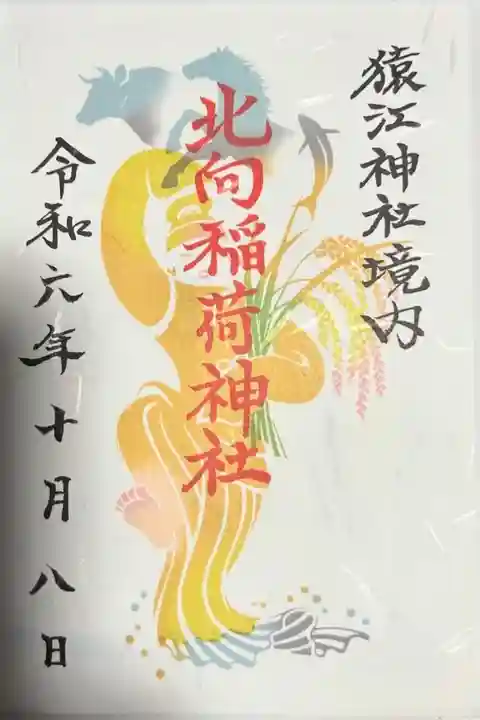 猿江神社境内
北向稲荷神社
令和六年十月八日